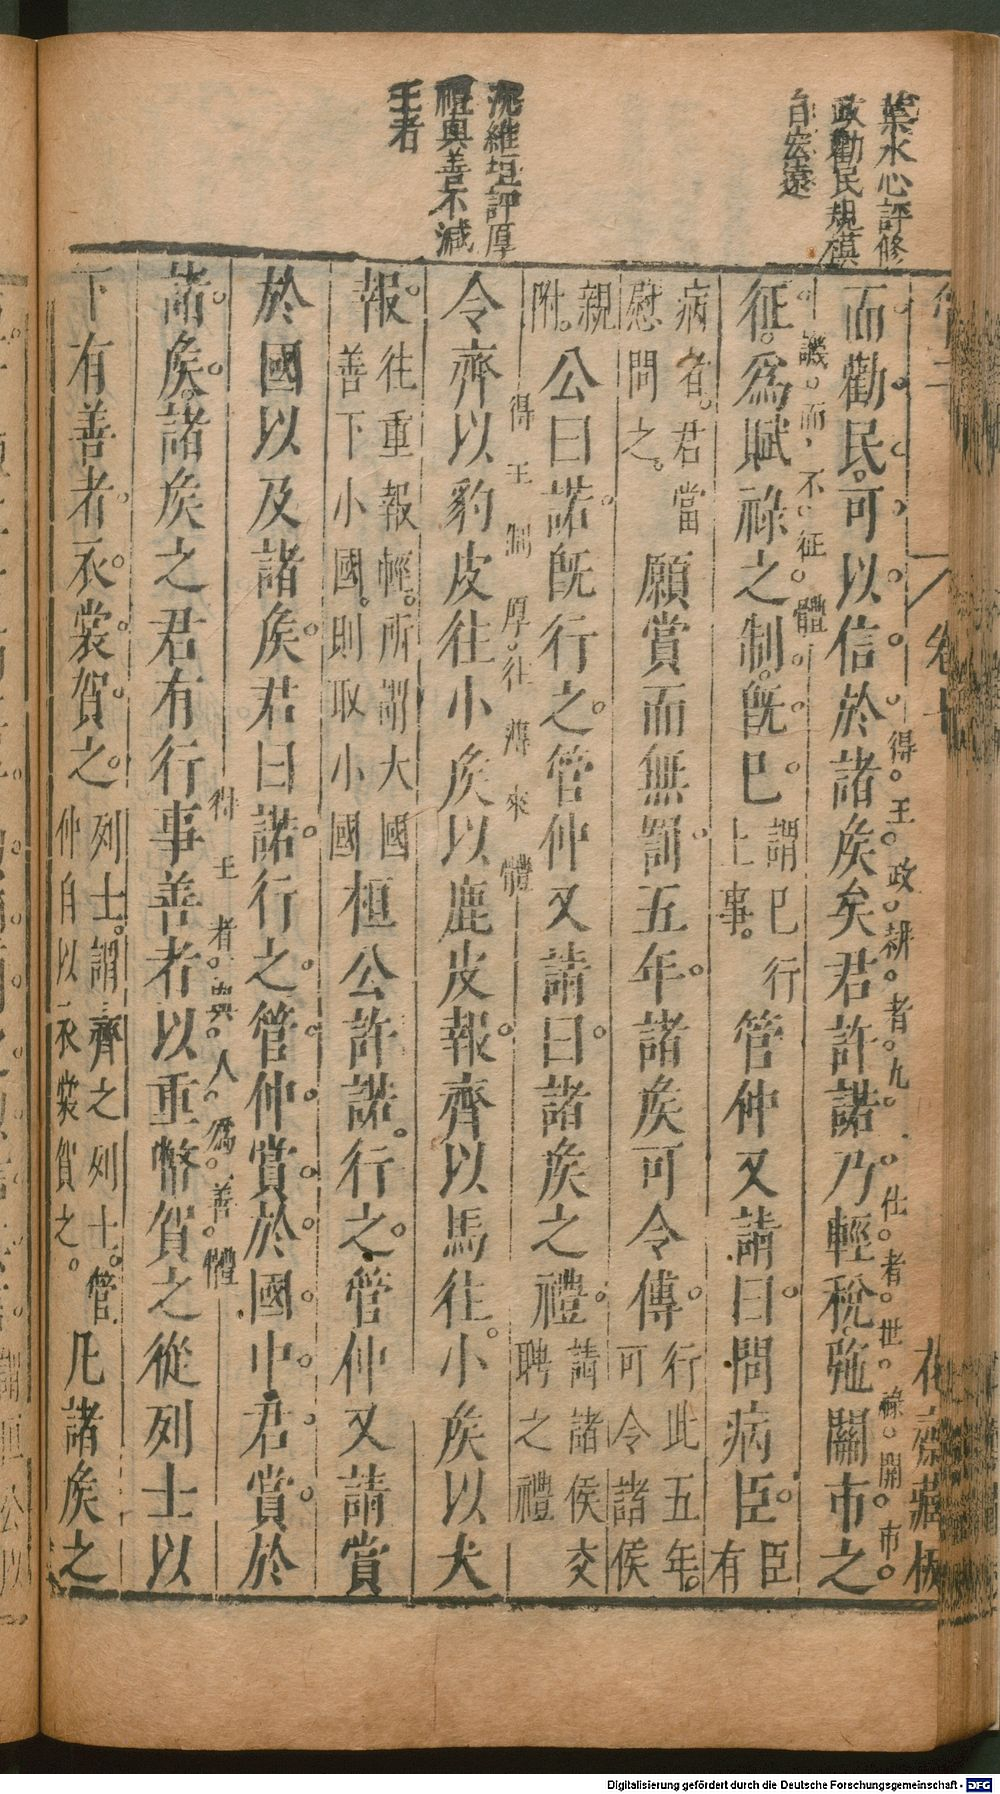 葉水心評修
政勸民規模
自宏遠
沈維垣評厚
禮與善不減
王者
卷
花齋藏板
而勸民可以信於諸矦矣君許諾乃輕稅弛關市之
得王政耕者九
仕者世祿關市
征爲賦祿之制旣已謂已行上事管仲又請曰問病臣臣有
譏而不征體
病者君當慰問之願賞而無罰五年諸矦可令傅行此五年可令諸侯
親附公曰諾旣行之管仲又請曰諸矦之禮請諸侯交聘之禮
令齊以豹皮往小矦以鹿皮報齊以馬往小矦以犬
得王制厚往薄來體
報往重報輕所謂大國善下小國則取小國桓公許諾行之管仲又請賞
於國以及諸矦君曰諾行之管仲賞於國中君賞於
諸矦諸矦之君有行事善者以重幣賀之從列士以
得王者與人爲善體
下有善者衣裳賀之列士謂齊之列士管仲自以衣裳賀之凡諸矦之
Digitalisierung gefördert durch die Deutsche Forschungsgemeinschaft - DFG